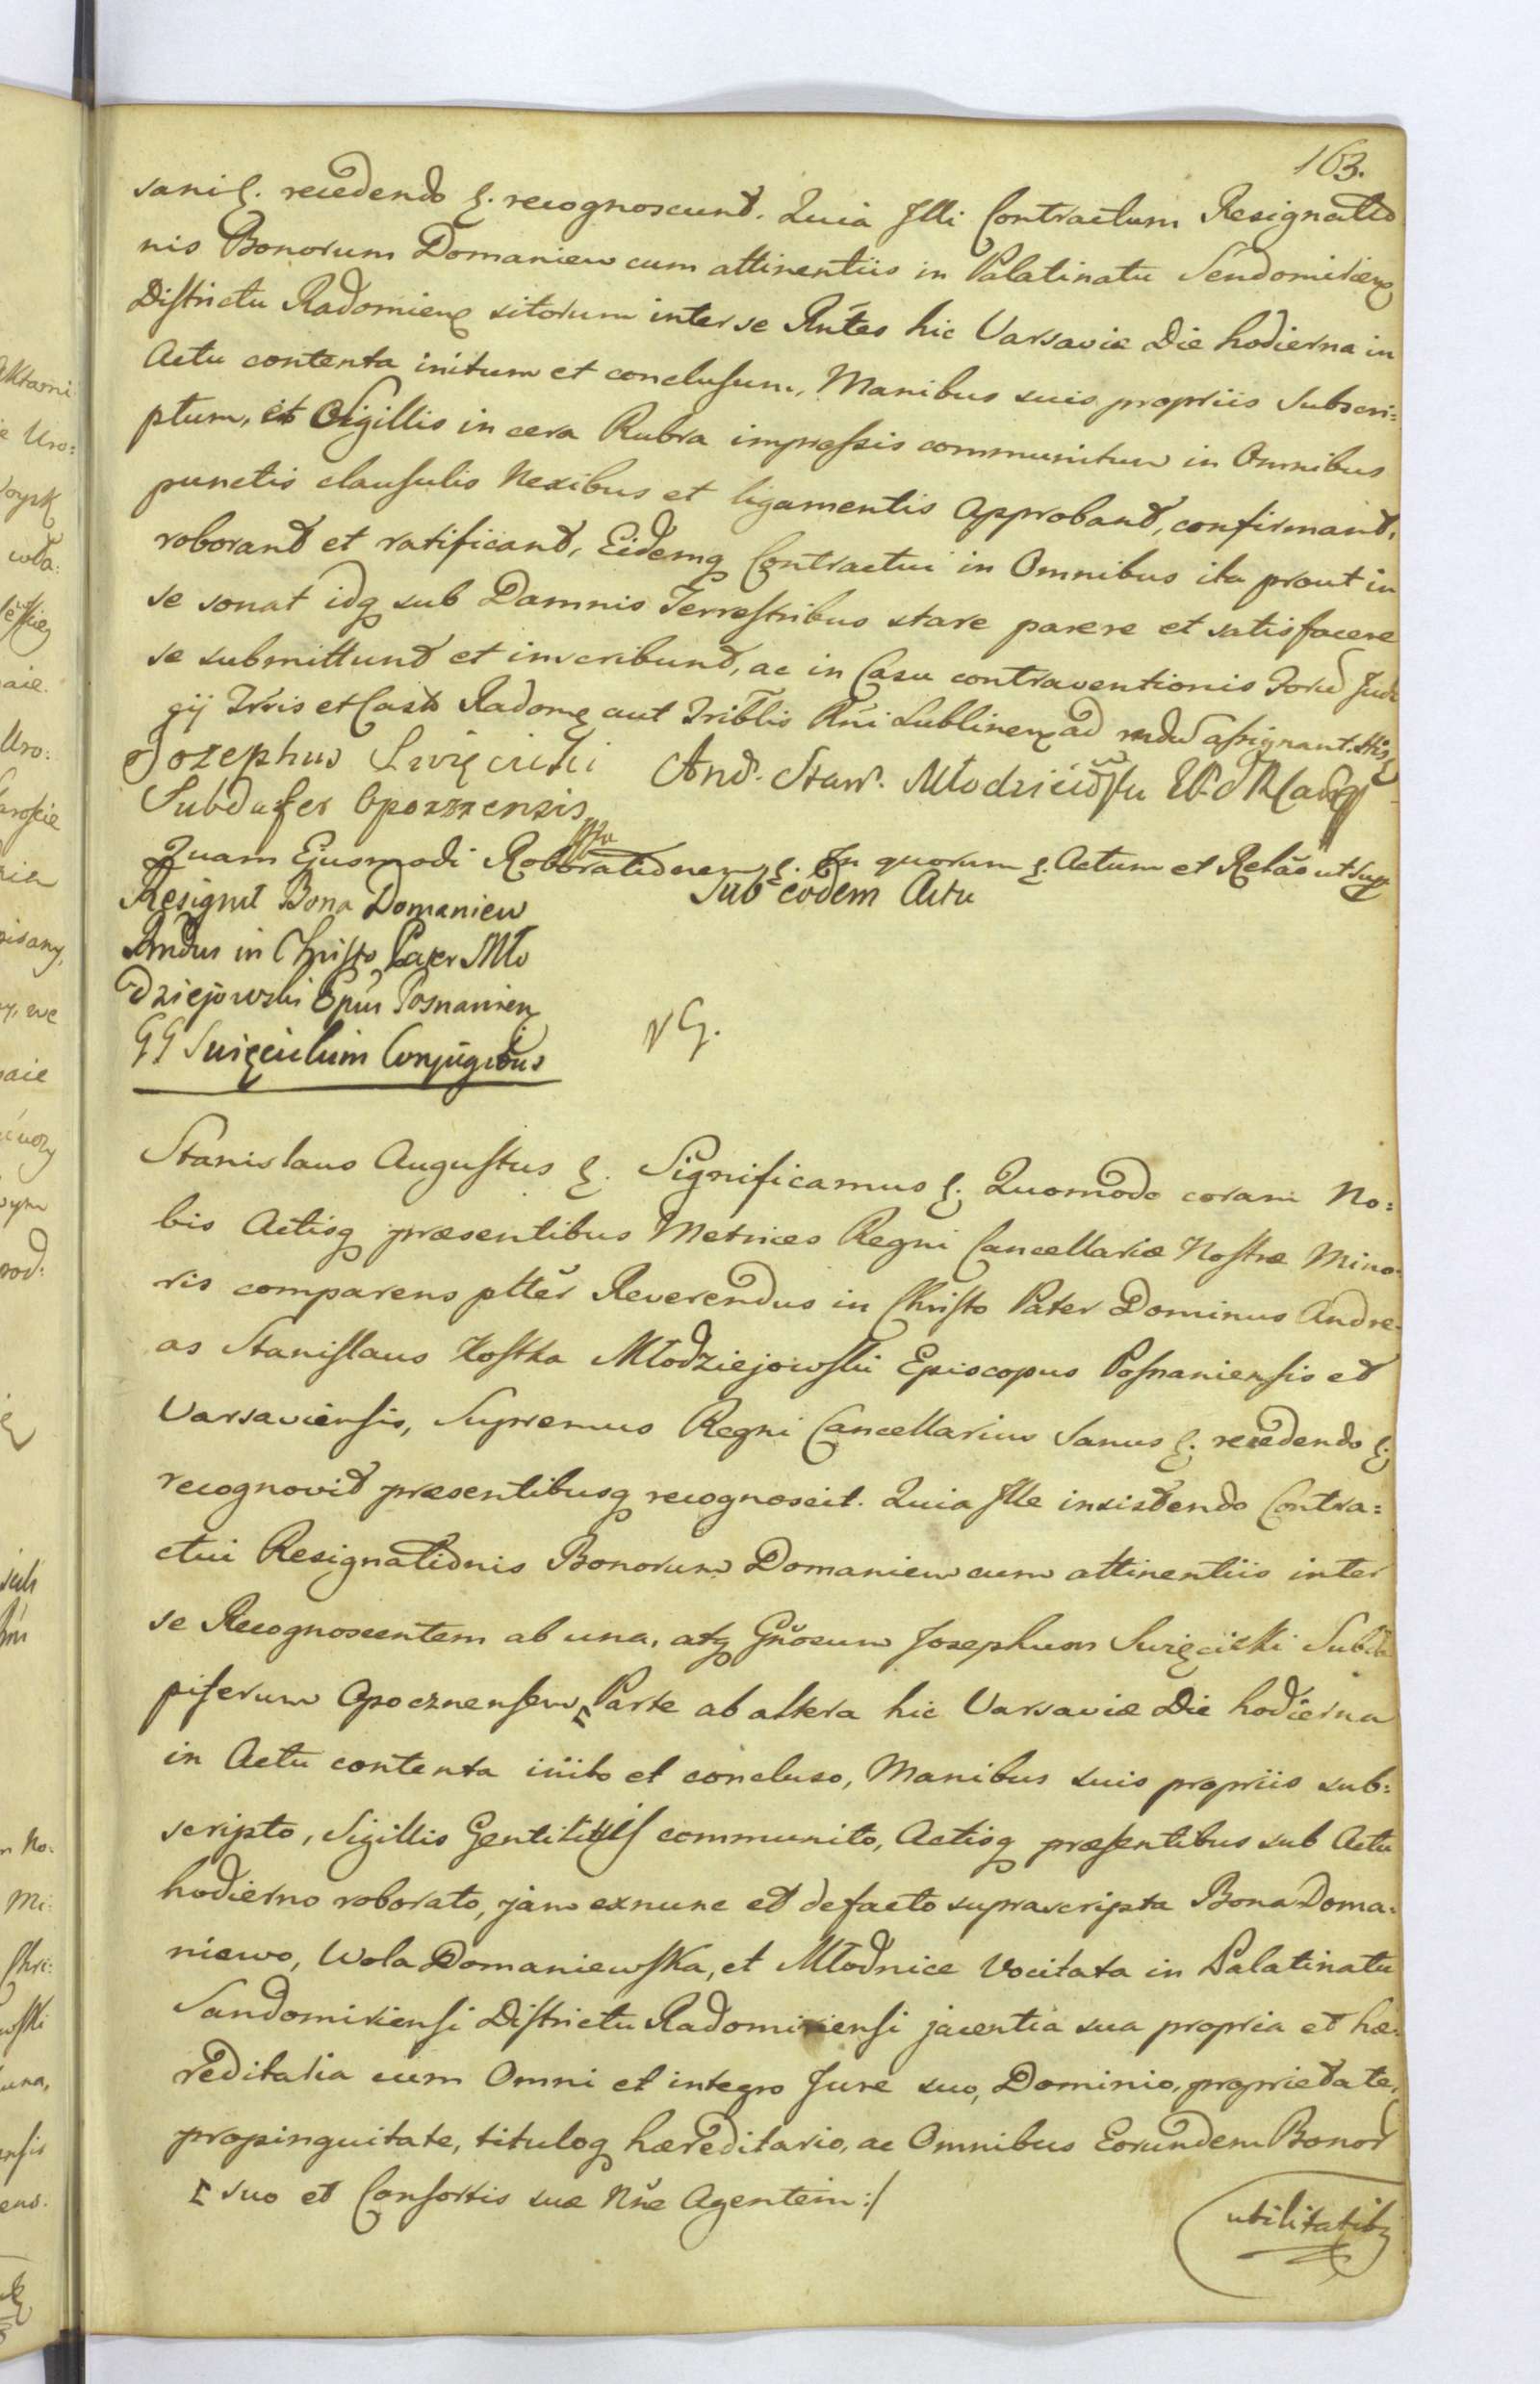 163.
sani &. recedendo &. recognoscunt. Quia Illi Contractum Resignatio
nis Bonorum Domaniew cum attinentiis in Palatinatu Sendomirien
Districtu Radomien sitorum inter se Rñtes hic Varsaviæ Die hodierna in
Actu contenta initum et conclusum, Manibus suis propriis Subscri:
ptum, et Sigillis in cera Rubra impressis communitum in Omnibus
punctis clausulis Nexibus et ligamentis approbant, confirmant,
roborant et ratificant, Eidemq Contractui in Omnibus ita prout in
se sonat idq sub Damnis Terrestribus stare parere et satisfacere
se submittunt et inscribunt, ac in Casu contraventionis Forũ Judi
cij Trris et Cast Radom aut Triblis Rñi Lublinen ad assignant.
Jozephus Swięcicki And. Stan. Młodziejowski
Subdafer Opoznensis
Quam Ejusmodi Roborationem &. In quorum &. Actum et Relão ut supr
Resignat Bona Domaniew Sub eodem Actu
Rndus in Christo Pater Mło
dziejowski Epũs Posnanien
GG Swięcickim Conjugibus
Stanislaus Augustus &. Significamus &. Quomodo coram No:
bis Actisq præsentibus Metrices Regni Cancellariæ Nostræ Mino:
ris comparens pltter Reverendus in Christo Pater Dominus Andre:
as Stanislaus Kostka Młodziejowski Episcopus Posnaniensis et
Varsaviensis, Supremus Regni Cancellarius Sanus &. recedendo &.
recognovit præsentibusq recognoscit. Quia Ille insistendo Contra:
ctui Resignationis Bonorum Domaniew cum attinentiis inter
se Recognoscentem ab una, atq Gñosum Josephum Swięcicki Subda
piferum Opocznensem, ⌈ Parte ab altera hic Varsaviæ Die hodierna
in Actu contenta inito et concluso, Manibus suis propriis sub:
scripto, Sigillis Gentilitiis communito, Actisq præsentibus sub Actu
hodierno roborato, jam exnunc et defacto suprascripta Bona Doma:
niewo, Wola Domaniewska, et Młodnice Vocitata in Palatinatu
Sandomiriensi Districtu Radomiriensi jacentia sua propria et hæ:
reditaria cum Omni et integro Jure suo, Dominio, proprietate,
propinquitate, tituloq hæreditario, ac Omnibus Eorundem Bonor
⌈ suo et Consortis suæ Nñe Agentem :/
utilitatibq